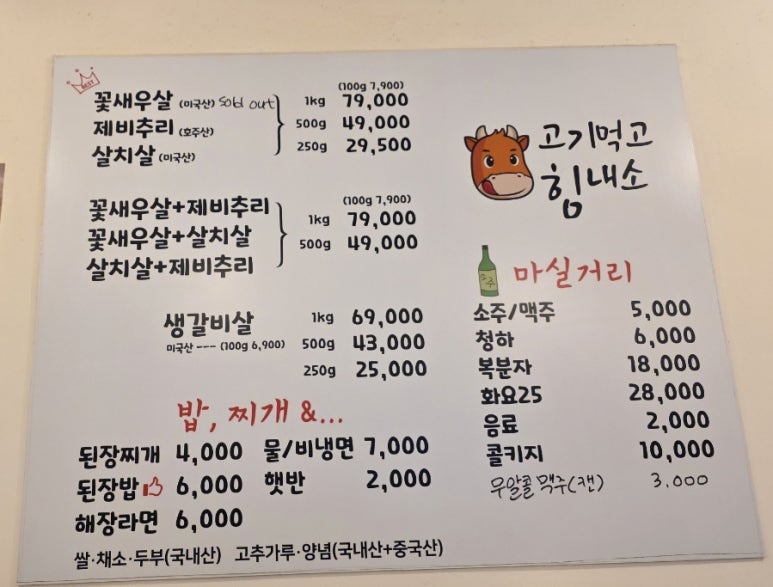 BEST
(100g 7,900)
꽃새우살 (미국산) Sold out 1kg 79,000
제비추리 (호주산) 500g 49,000
살치살 (미국산) 250g 29,500
(100g 7,900)
꽃새우살+제비추리 1kg 79,000
꽃새우살+살치살 500g 49,000
살치살+제비추리
생갈비살 1kg 69,000
미국산 --- (100g 6,900) 500g 43,000
250g 25,000
밥, 찌개 &...
된장찌개 4,000 물/비냉면 7,000
된장밥 6,000 햇반 2,000
해장라면 6,000
쌀·채소·두부(국내산) 고추가루·양념(국내산+중국산)
고기먹고
힘내소
소주
마실거리
소주/맥주 5,000
청하 6,000
복분자 18,000
화요25 28,000
음료 2,000
콜키지 10,000
무알콜 맥주(캔) 3.000